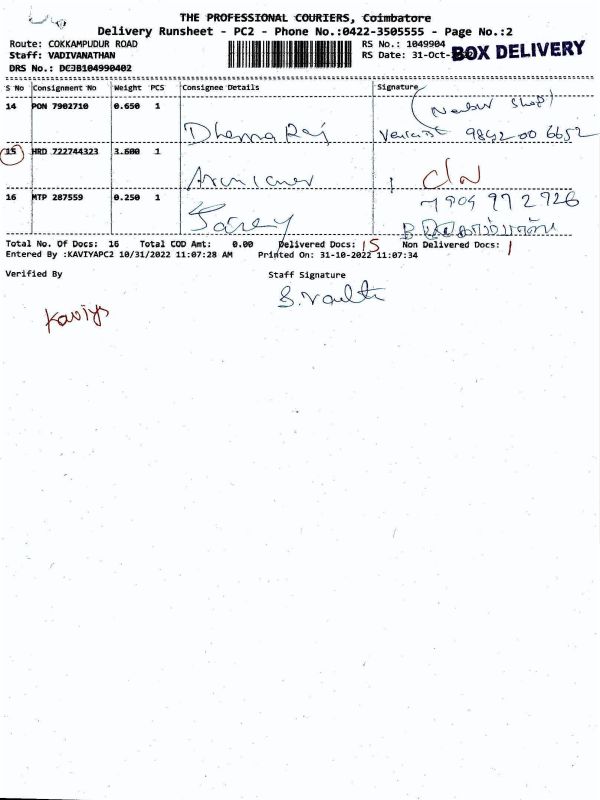 THE PROFESSIONAL COURIERS, Coimbatore
Delivery Runsheet - PC2 - Phone No.:0422-3505555 - Page No.:2
Route: COKKAMPUDUR ROAD RS No.: 1049904
Staff: VADIVANATHAN RS Date: 31-Oct- BOX DELIVERY
DRS No.: DC3B104990402
S No Consignment No Weight PCS Consignee Details Signature
14 PON 7902710 0.650 1
Dhanna Raj 9842 00 6652
15 HRD 722744323 3.600 1
16 MTP 287559 0.250 1 7904 972926
Total No. Of Docs: 16 Total COD Amt: 0.00 Delivered Docs: 15 Non Delivered Docs: 1
Entered By :KAVIYAPC2 10/31/2022 11:07:28 AM Printed On: 31-10-2022 11:07:34
Verified By Staff Signature
Kaviya